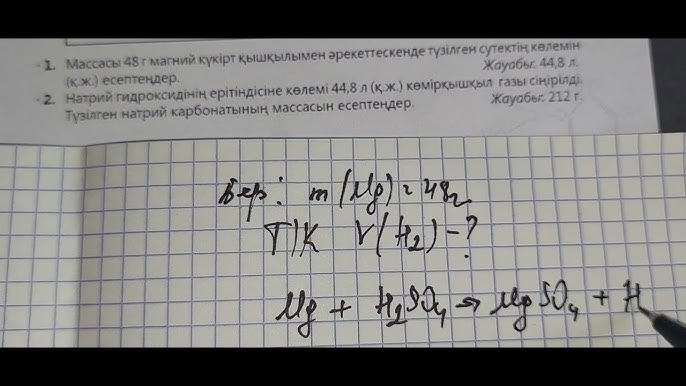 1. Массасы 48 г магний күкірт қышқылымен әрекеттескенде түзілген сутектің көлемін
(қ.ж.) есептеңдер. Жауабы: 44,8 л.
2. Натрий гидроксидінің ерітіндісіне көлемі 44,8 л (қ.ж.) көмірқышқыл газы сіңірілді.
Түзілген натрий карбонатының массасын есептеңдер. Жауабы: 212 г.
Бер: m(Mg) = 48г
Т/К V(H₂) - ?
Mg + H₂SO₄ → MgSO₄ + H